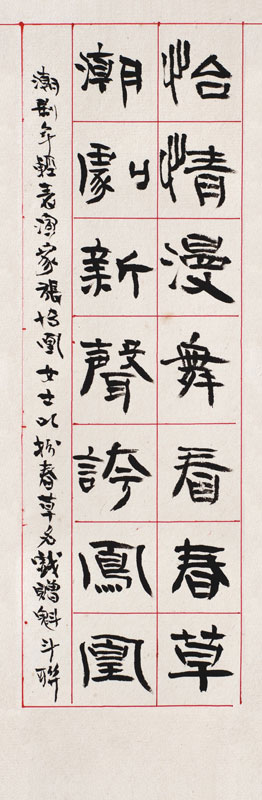 怡情漫舞看春草
潮劇新聲誇鳳凰
潮劇年輕表演家張怡凰女士以扮春草名戯贈魁斗聯